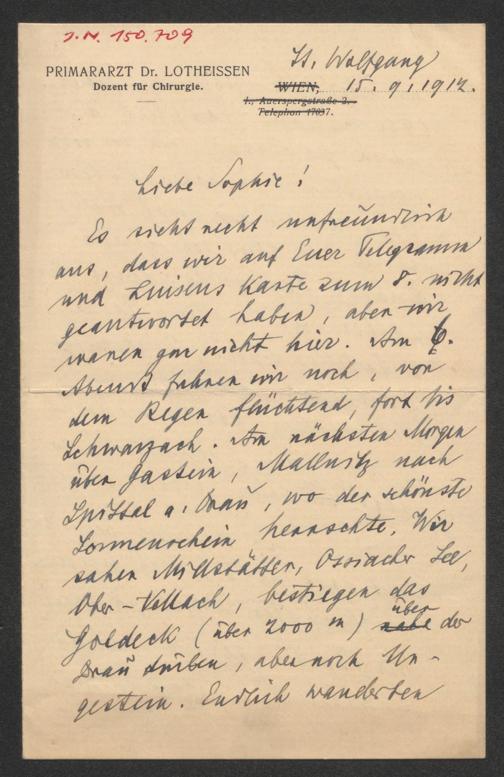 J.N. 150.709
PRIMARARZT Dr. LOTHEISSEN
Dozent für Chirurgie.
St. Wolfgang
WIEN, 15. 9. 1912.
I., Auerspergstraße 2.
Telephon 17037.
Liebe Sophie!
Es sieht recht unfreundlich
aus, dass wir auf Euer Telegramm
und Luisens Karte zum 8. nicht
geantwortet haben, aber wir
waren gar nicht hier. Am 6.
Abends fuhren wir noch, vor
dem Regen flüchtend, fort bis
Schwarzach. Am nächsten Morgen
über Gastein, Mallnitz nach
Spittal a. Drau, wo der schönste
Sonnenschein herrschte. Wir
sahen Millstätter, Ossiacher See,
Ober-Vellach, bestiegen das
Goldeck (über 2000 m) nahe über der
Drau drüben, aber noch Un-
gestein. Endlich wanderten